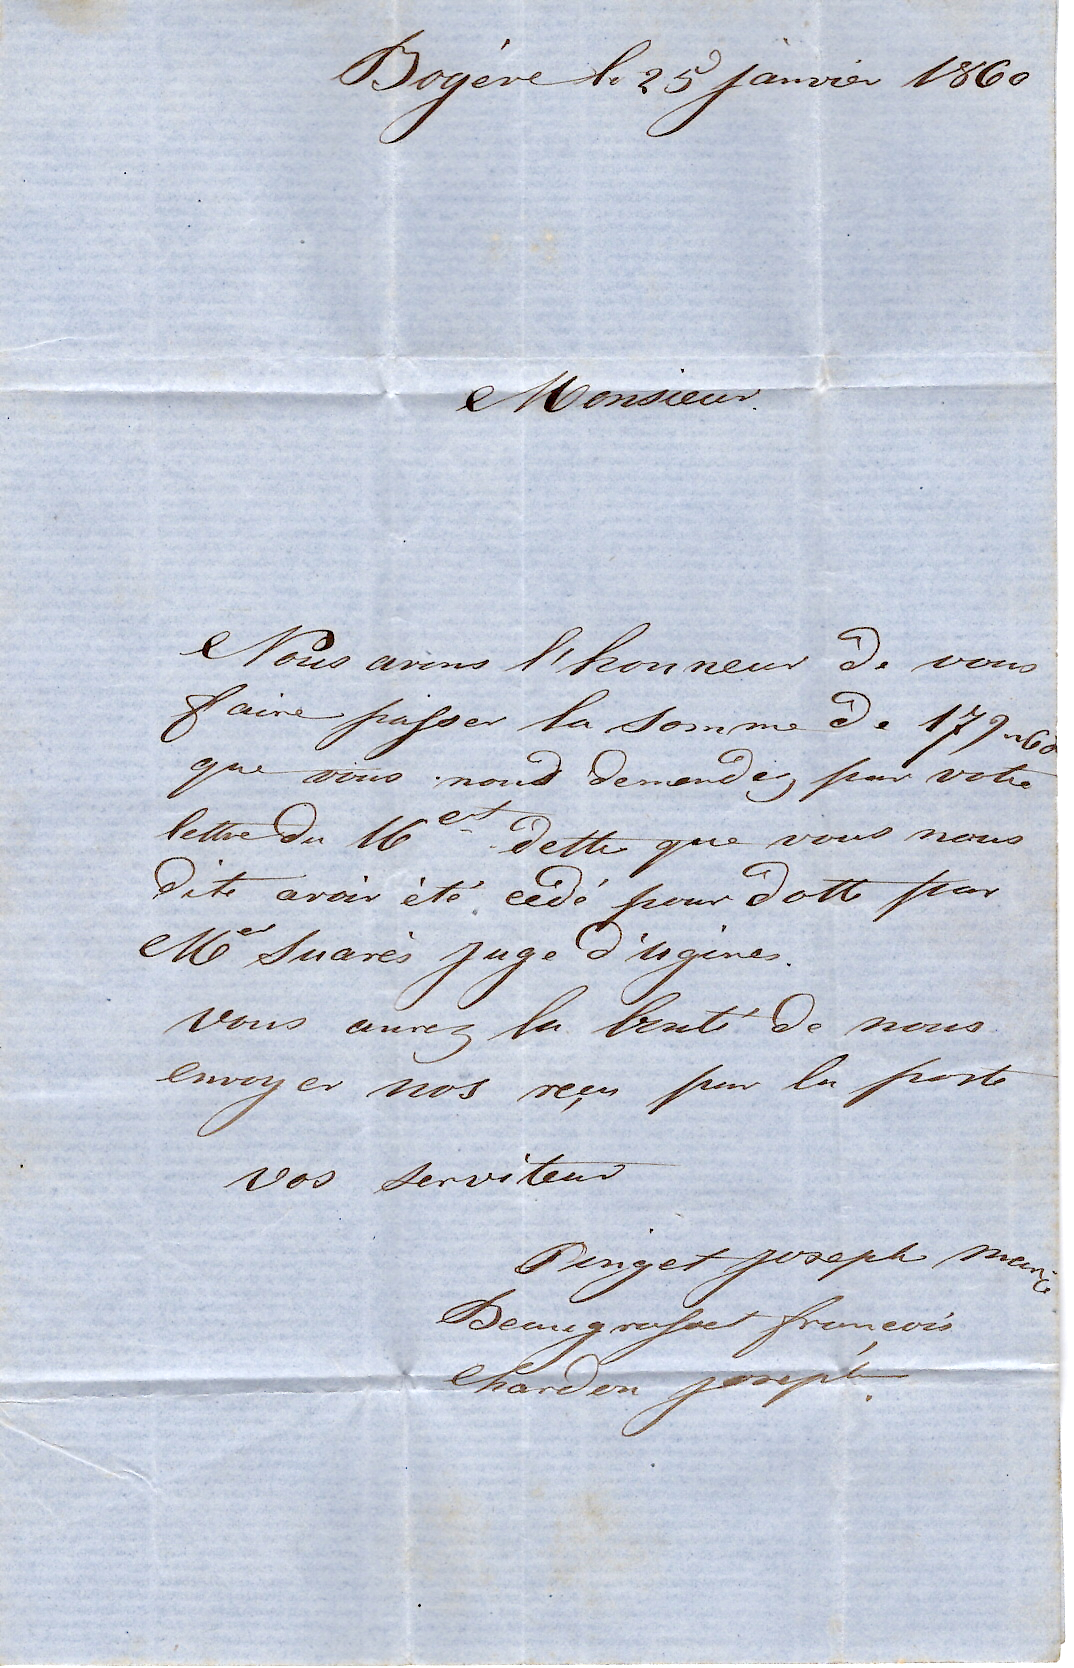 Bogéve le 25 janvier 1860
Monsieur
Nous avons l'honneur de vous
faire passer la somme de 179
que vous nous demandez par votre
lettre du 16 ct dette que vous nous
dite avoir été cédé pour dotte par
Mer Suarés juge d'ugines.
Vous aurez la bonté de nous
envoyer nos reçu par la poste
vos serviteur
Pinget joseph marie
françois
Chardon joseph.